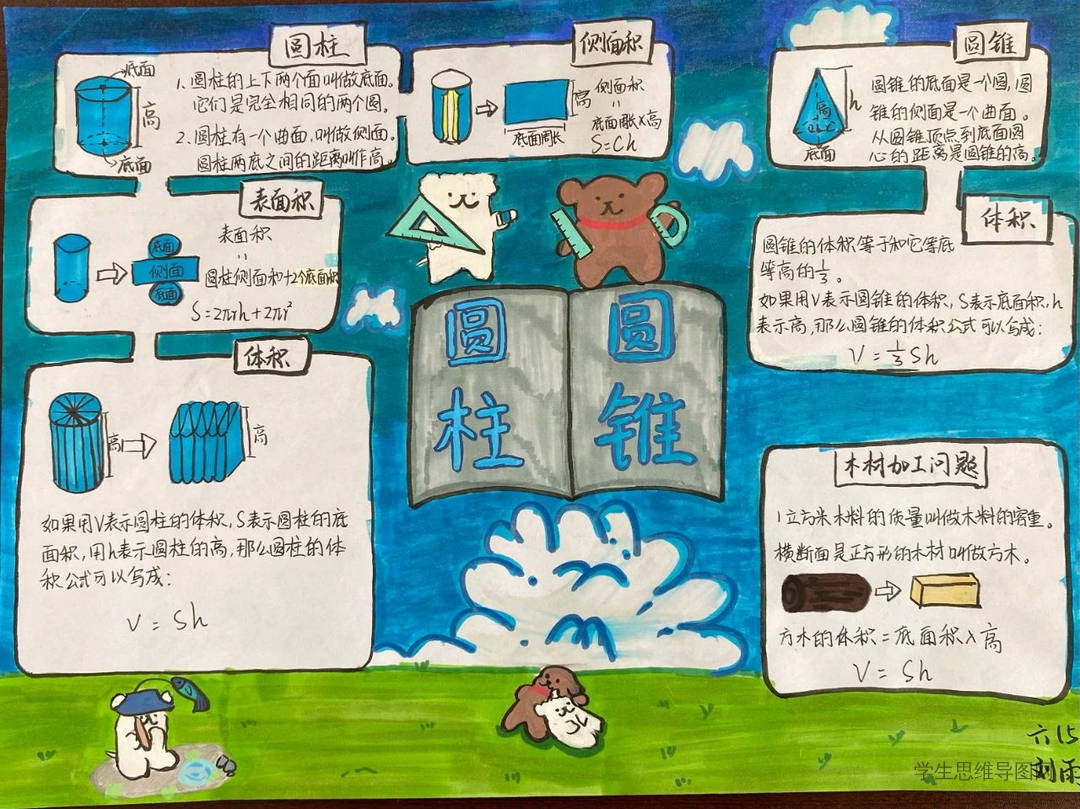 圆柱
底面
高
底面
1. 圆柱的上下两个面叫做底面。
它们是完全相同的两个圆。
2. 圆柱有一个曲面，叫做侧面。
圆柱两底之间的距离叫作高。
侧面积
高
底面周长
侧面积
=
底面周长×高
S=Ch
圆锥
高
h
底面
圆锥的底面是一个圆，圆
锥的侧面是一个曲面。
从圆锥顶点到底面圆
心的距离是圆锥的高。
表面积
底面
侧面
底面
表面积
=
圆柱侧面积+2个底面积
S=2πrh+2πr²
体积
圆锥的体积等于和它等底
等高的1/3。
如果用V表示圆锥的体积，S表示底面积，h
表示高，那么圆锥的体积公式可以写成：
V=1/3Sh
圆柱
圆锥
体积
高
高
如果用V表示圆柱的体积，S表示圆柱的底
面积，用h表示圆柱的高，那么圆柱的体
积公式可以写成：
V=Sh
木材加工问题
1立方米木料的质量叫做木料的容重。
横断面是正方形的木材叫做方木。
方木的体积=底面积×高
V=Sh
六15
刘雨
学生思维导图